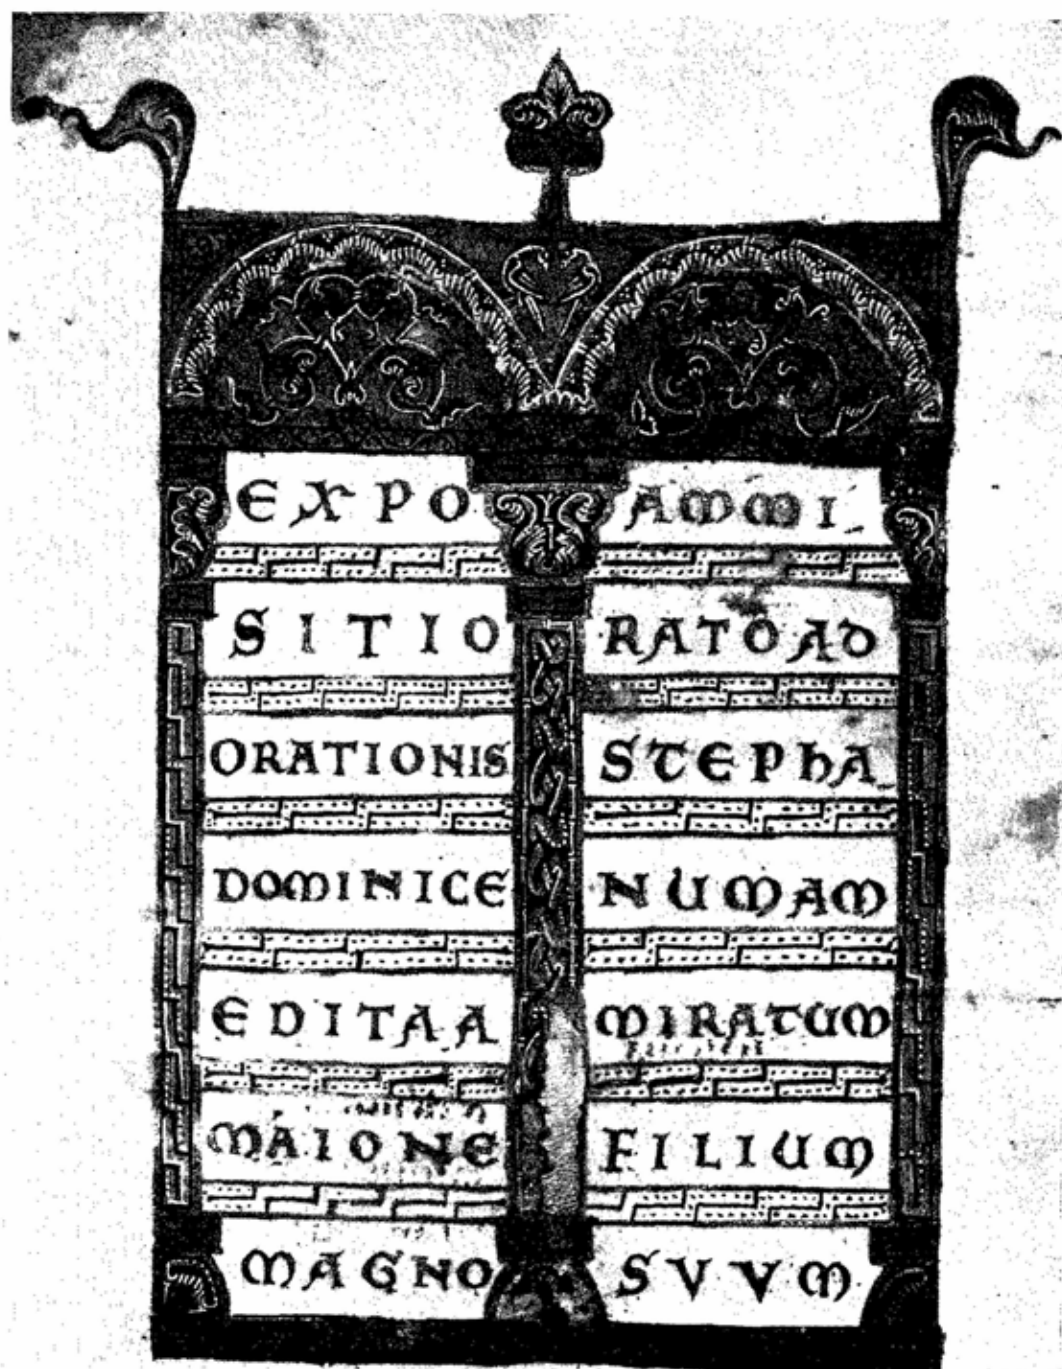 EXPO
SITIO
ORATIONIS
DOMINICE
EDITAA
MAIONE
MAGNO
AMMI
RATOAD
STEPhA
NUMAM
MIRATUM
FILIUM
SVVM